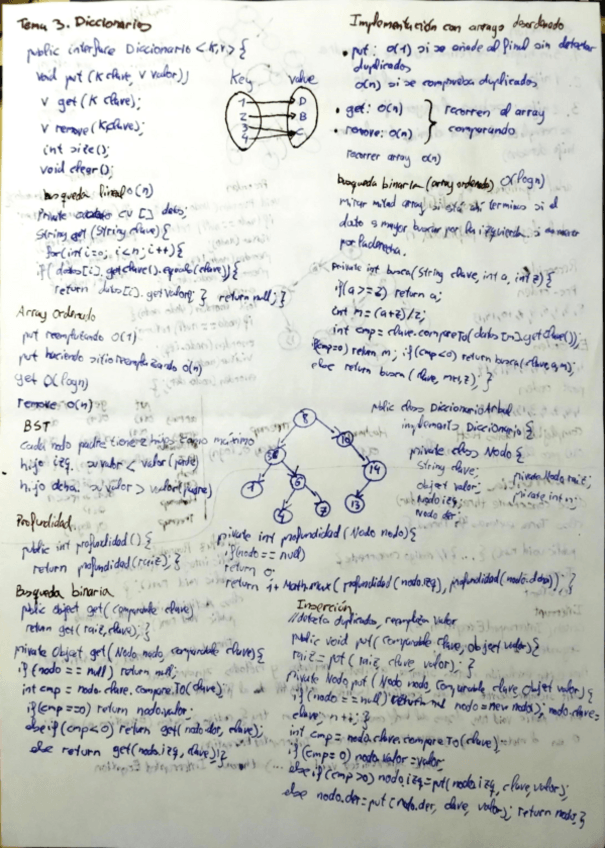 Tema 3. Diccionarios
public interface Diccionario <K,V> {
void put (K clave, V valor);
V get (K clave);
V remove (K clave);
int size();
void clear();
Key value
1 D
2 B
3 C
4
busqueda lineal O(n)
private CV [] datos;
String get (String clave) {
for (int i=0; i<n; i++) {
if (datos[i].getclave().equals(clave)) {
return datos[i].getvalor; } return null; }
Array ordenado
put reemplazando O(1)
put haciendo sitio reemplazado O(n)
get O(logn)
remove O(n)
BST
cada nodo padre tiene 2 hijos como máximo
hijo izq. valor < valor (padre)
hijo dcha. valor > valor (padre)
Profundidad
public int profundidad () {
return profundidad (raiz); }
Busqueda binaria
public object get (comparable clave)
return get (raiz, clave); }
private Object get (Nodo nodo, comparable clave) {
if (nodo == null) return null;
int cmp = nodo.clave.compareTo(clave);
if (cmp==0) return nodo.valor;
else if (cmp<0) return get (nodo.der, clave);
else return get (nodo.izq, clave); }
Implementación con arrays desordenado
• put: O(1) si se añade al final sin detectar
duplicados
O(n) si se comprueba duplicados
• get: O(n) } recorren el array
• remove: O(n) comparando
recorrer array O(n)
busqueda binaria (array ordenado) O(logn)
mirar mitad array si está ahí termino si el
dato es mayor buscar por la izquierda si es menor
por la derecha.
private int busca (String clave, int a, int z) {
if (a >= z) return a;
int m = (a+z)/2;
int cmp = clave.compareTo(datos[m].getClave());
if (cmp=0) return m; if (cmp<0) return busca (clave, a, m);
else return busca (clave, m+1, z); }
8
10
1
14
4
7
13
public class DiccionarioArbol
implements Diccionario {
private class Nodo {
String clave;
object valor;
Nodo izq
Nodo der
private Nodo raiz;
private int n;
private int profundidad (Nodo nodo) {
if (nodo == null)
return 0;
return 1+ Math.max (profundidad (nodo.izq), profundidad (nodo.dcho)); }
Inserción
//detecta duplicados, reemplaza valor
public void put (comparable clave, object valor) {
raiz = put (raiz, clave, valor); }
private Nodo put (Nodo nodo, Comparable clave, Objet valor) {
if (nodo == null) nodo = new nodo(); nodo.clave=
clave; n++; }
int cmp = nodo.clave.compareTo (clave);
if (cmp = 0) nodo.valor = valor
else if (cmp >0) nodo.izq = put (nodo.izq, clave, valor);
else nodo.der = put (nodo.der, clave, valor); return nodo; }